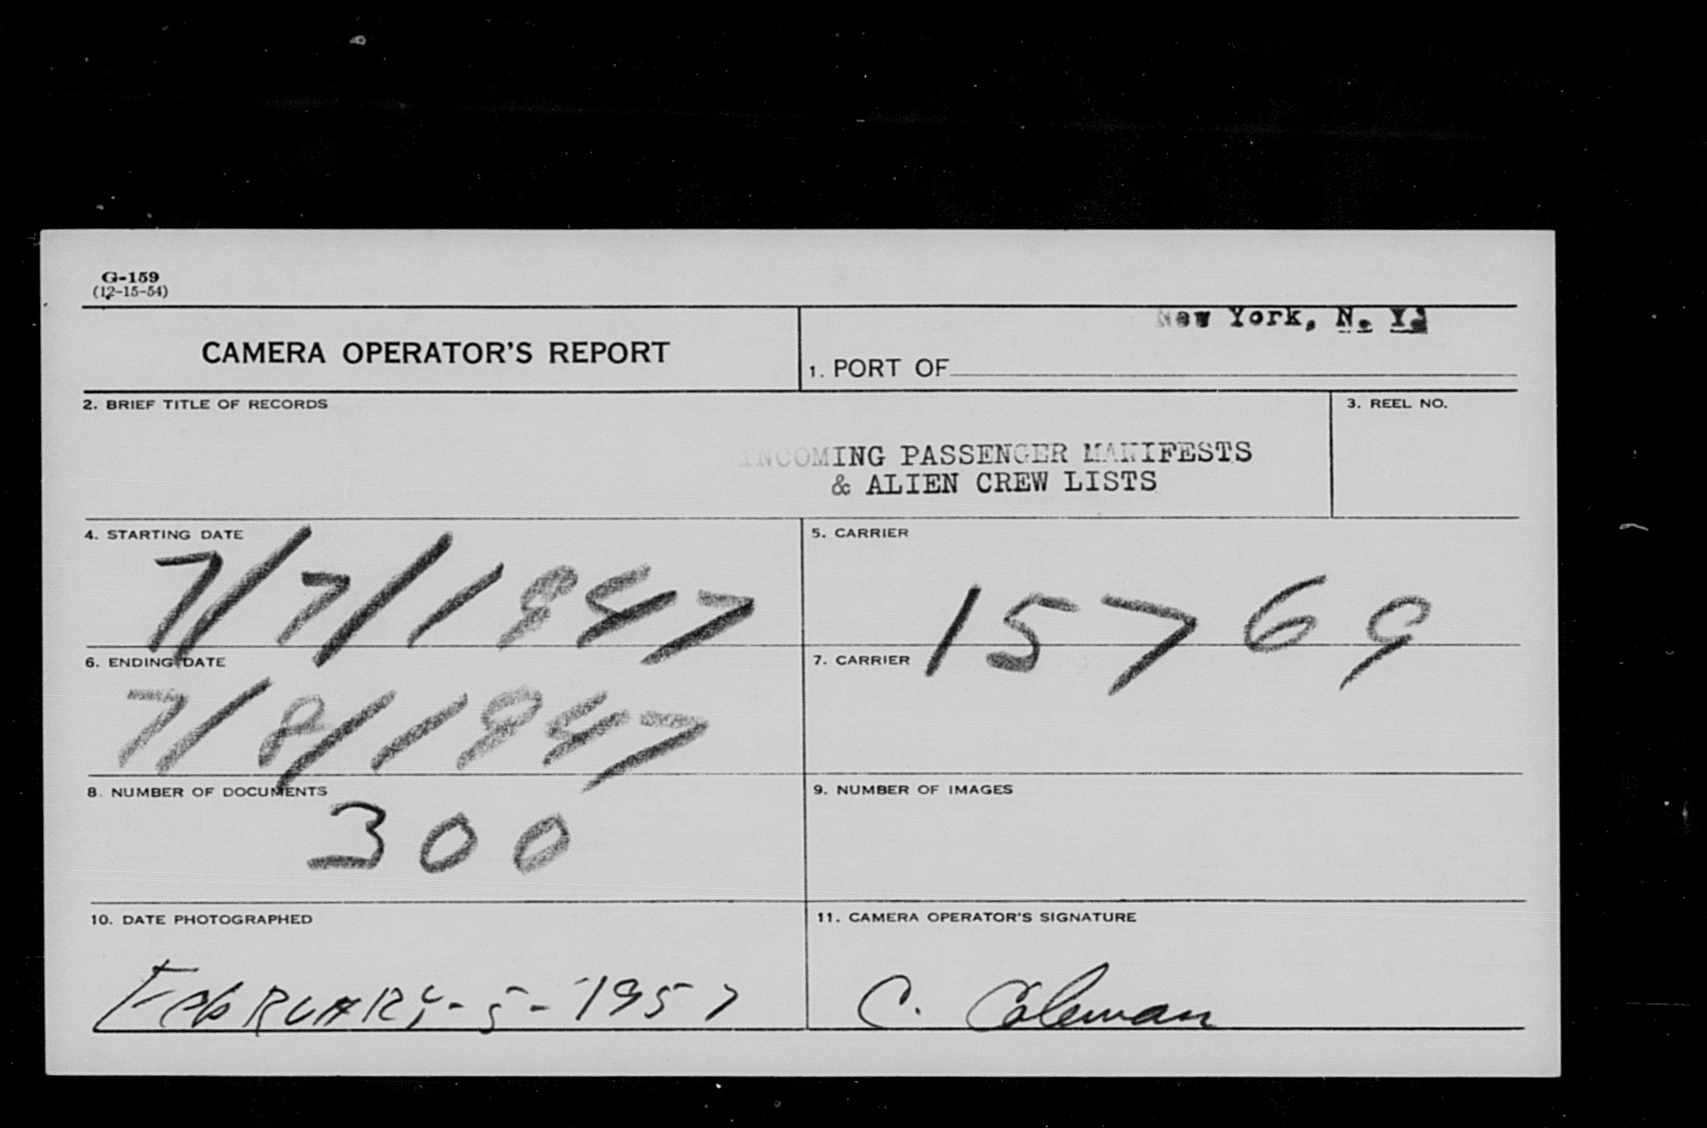 G-159
(12-15-54)
New York, N. Y.
CAMERA OPERATOR'S REPORT
1. PORT OF
2. BRIEF TITLE OF RECORDS
3. REEL NO.
INCOMING PASSENGER MANIFESTS
& ALIEN CREW LISTS
4. STARTING DATE
7/7/1947
5. CARRIER
15769
6. ENDING DATE
7/8/1947
7. CARRIER
8. NUMBER OF DOCUMENTS
300
9. NUMBER OF IMAGES
10. DATE PHOTOGRAPHED
FebRUARY-5-1957
11. CAMERA OPERATOR'S SIGNATURE
C. Coleman